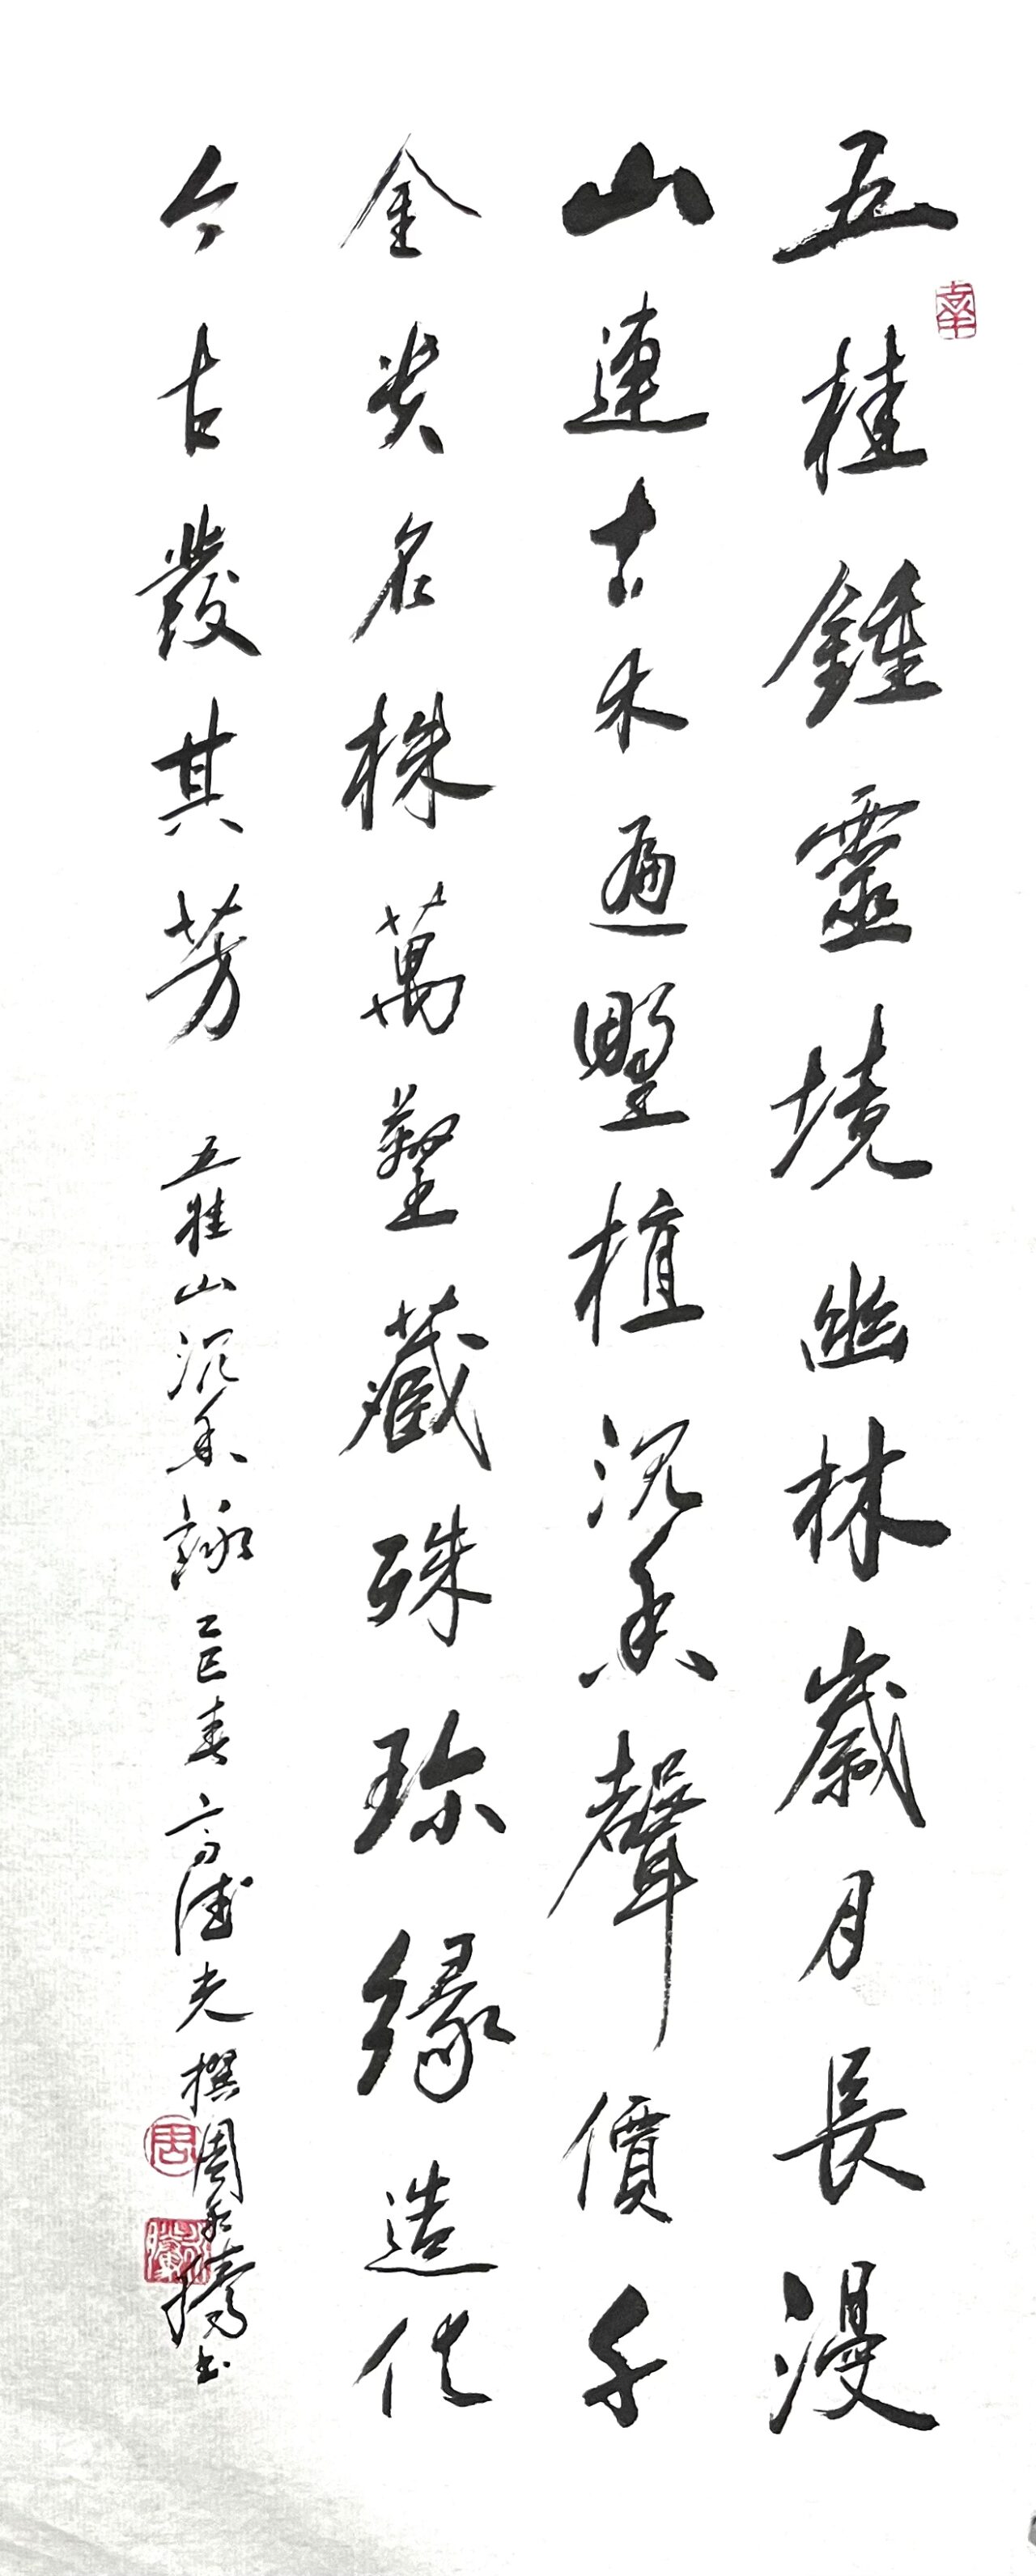 五桂鍾靈境幽林歲月長漫
山連古木遍野植沉香聲價千
金貴名株萬壑藏殊珍緣造化
今古發其芳 五桂山沉香詠 乙巳春 高德光撰 周書
周